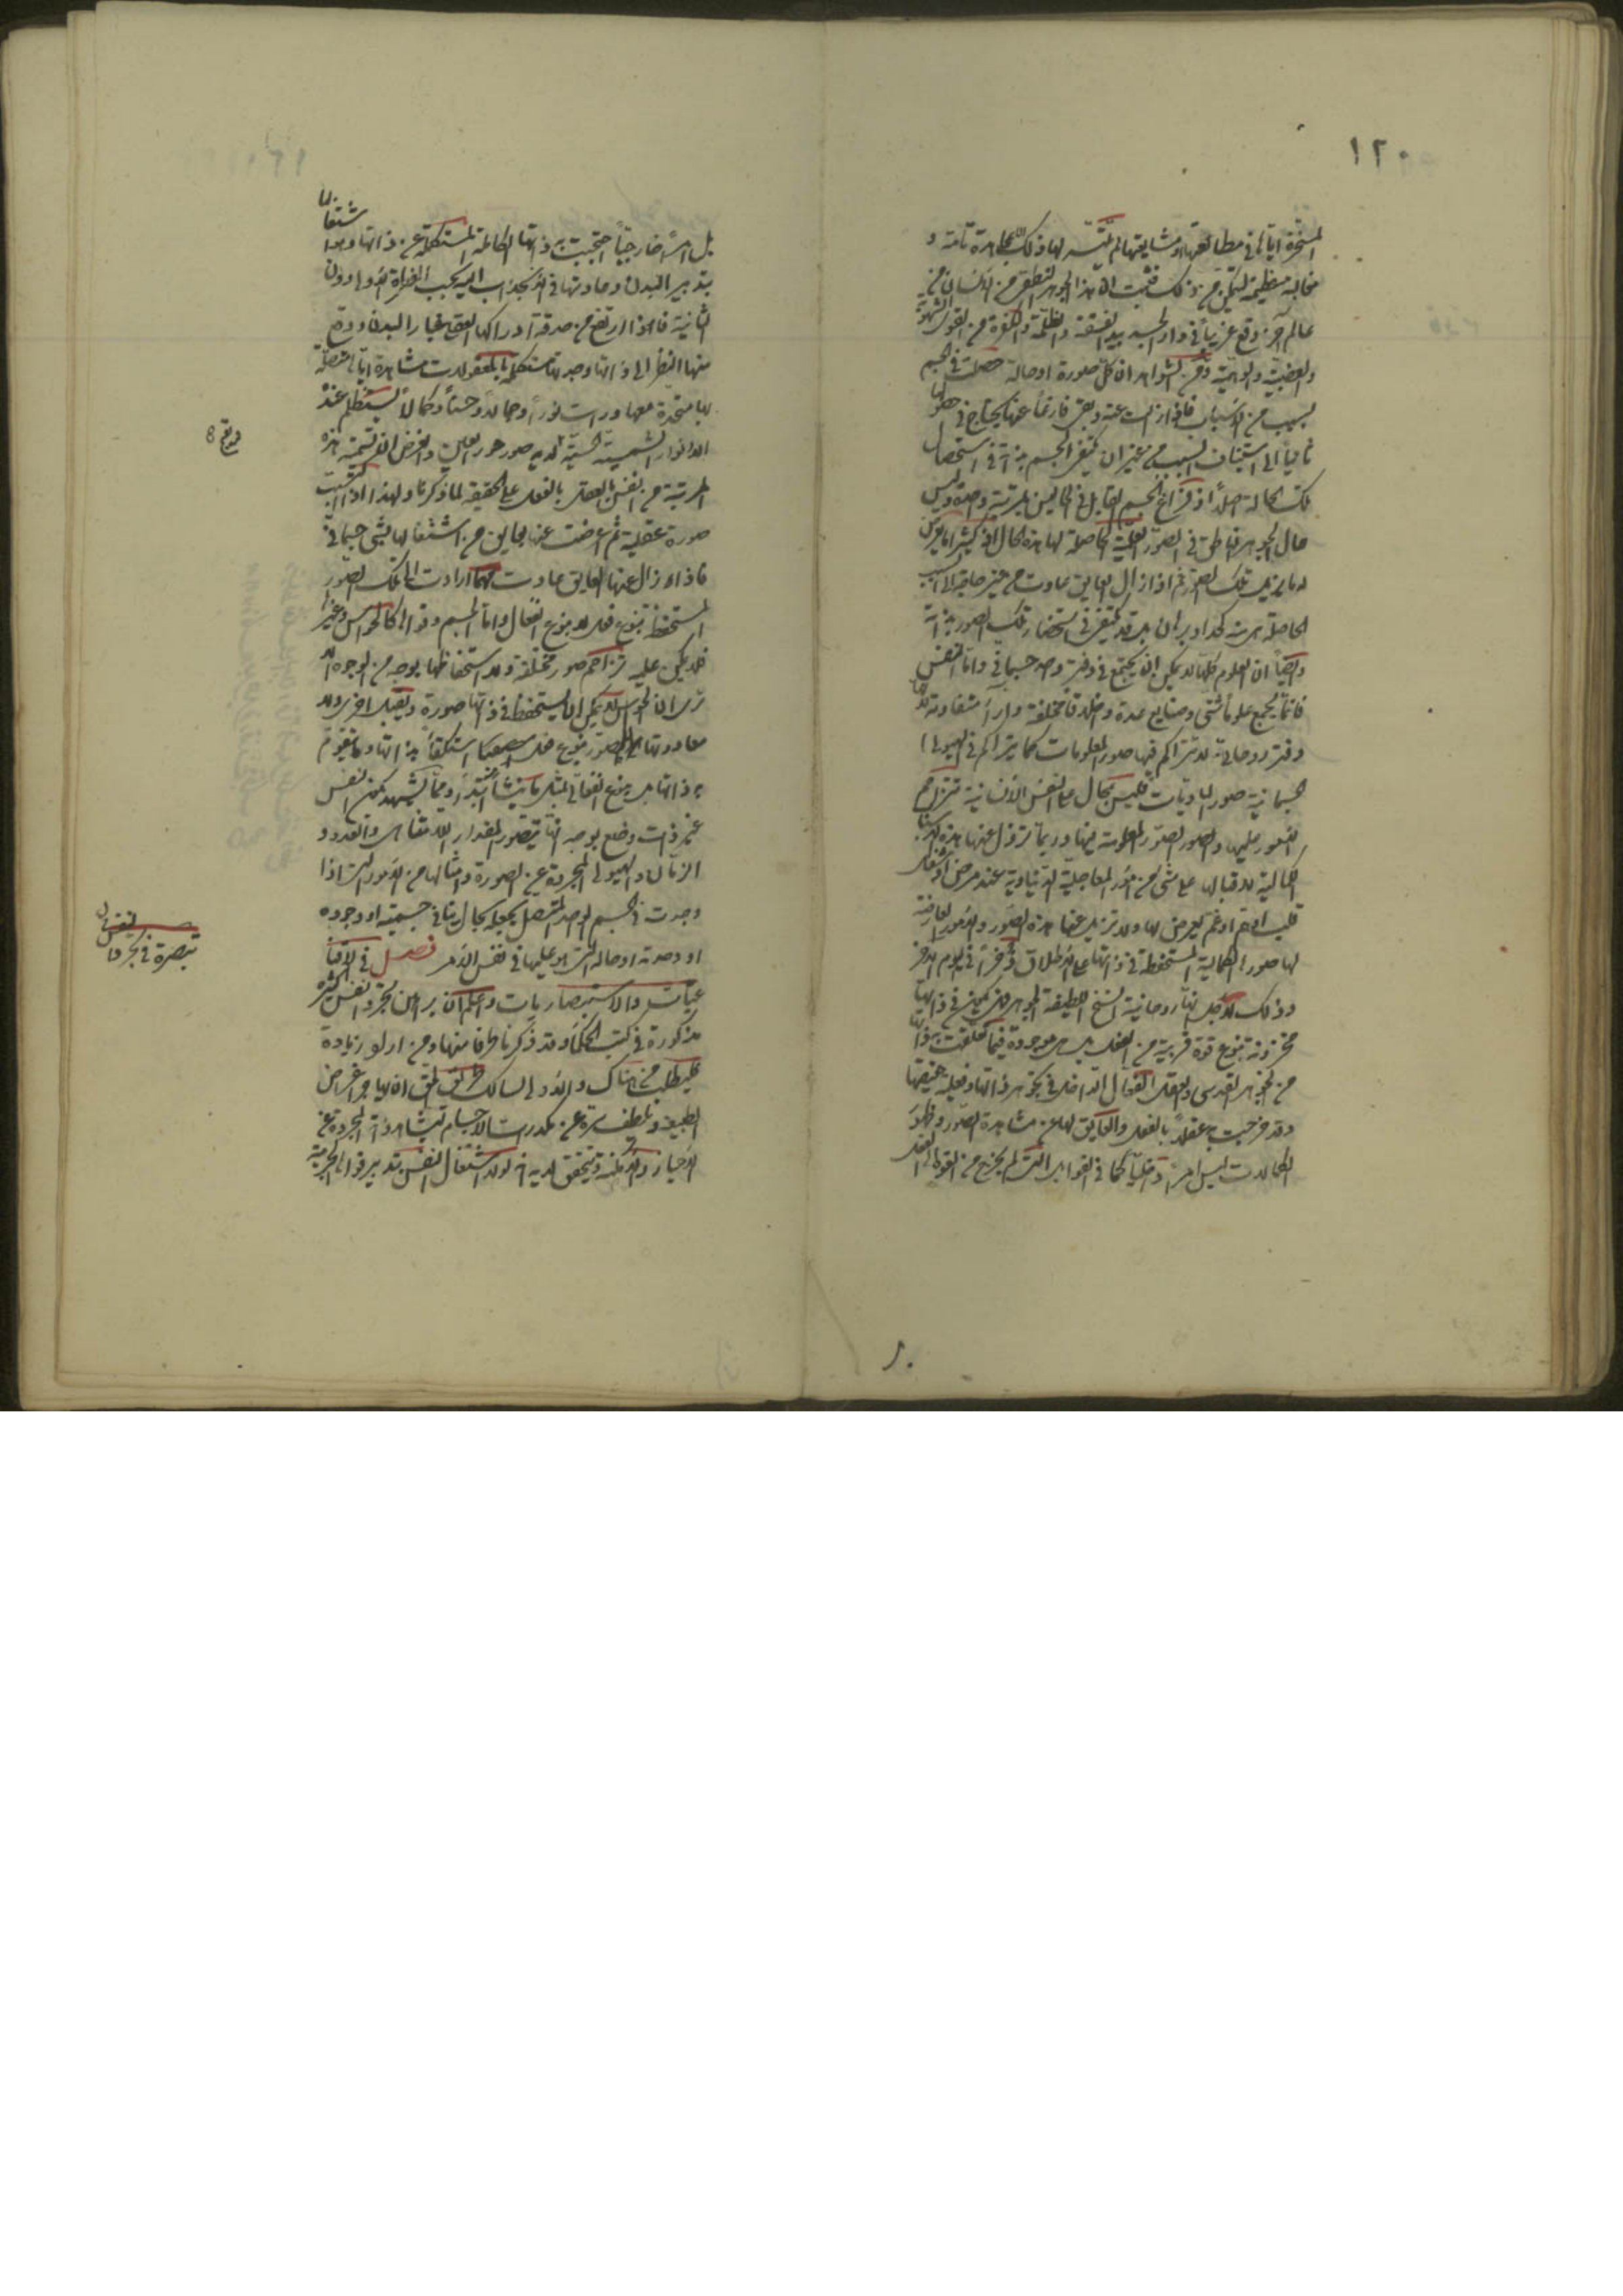 ١٢٠
المسخرة اياها في مطالعتها ومشايعتها لم يتيسر لها ذلك الا بمجاهدة تامة و
مغالبة عظيمة ليتمكن من ذلك فثبت ان هذا الجوهر النطقي من الانسان من
عالم آخر وقع غريبا في دار الجسد بيد الفسقة والظلمة والكفرة من القوى الشهوية
والغضبية والوهمية ومن الشواهد ان كل صورة او حالة حصلت في الجسم
بسبب من الاسباب فاذا زالت عنه وبقى فارغا عنها يحتاج في حصولها
ثانيا الى استيناف السبب من غير ان يكتفي الجسم بذاته في استحصال
تلك الحالة اصلا اذ فراغ الجسم القابل في الحالين بمرتبة واحدة وليس
حال الجوهر الناطق في الصور العقلية الحاصلة لها هذه الحال اذ كثيرا ما يعرض
له ما يزيل تلك الصور ثم اذا زال العايق عادت من غير حاجة الى السبب
الحاصلة منه كحد او برهان بل قد يكتفي في استحضار تلك الصور بذاته
وايضا ان العلوم كلها لا يمكن ان يجتمع في دفتر واحد جسماني واما النفس
فانما يجمع علوما شتى وصنايع عدة واخلاقا مختلفة وآراء متفاوتة لانها
دفتر روحاني لا تتراكم فيها صور المعلومات كما يتراكم في الهيولى
الجسمانية صور الماديات فليس بمحال على النفس الانسانية تزاحم
الصور عليها والصور المعلومة فيها وربما تزول عنها هذه الهيئات
الكمالية لاقبالها على شيء من امور العاجلية الدنياوية عند مرض او شغل
قلب او هم او غم يعرض لها ولا تزيل عنها هذه الصور والامور العارضة
لها صورها الكمالية المستحفظة في ذاتها على الاطلاق وذخرا في اليوم الآخر
وذلك لاجل انها روحانية السنخ لطيفة الجوهر فيكون في ذاتها
مخزونة بنوع قوة قريبة من الفعل بل هي موجودة فيما تعلقت به ذاتها
من الجوهر القدسي والعقل الفعال الداخل في تجوهر ذاتها وفعلية حقيقتها
وقد خرجت به عقلا بالفعل والعايق لها عن مشاهدة الصور وظهور
الكمالات ليس امرا داخليا كما في القوابل التي لم يخرج من القوة الى الفعل
بل امرا خارجيا احتجبت به ذاتها الكاملة المستكملة عن ذاتها وهو اشتغالها
بتدبير البدن وصاحبتها في الانجذاب اليه بحسب الفطرة الاولى دون
الثانية فاذا ارتفع من حدقة ادراكها العقلي غبار البدن ووقع
منها النظر الى ذاتها وجدتها مستكملة بالمعقولات مشاهدة اياها متصلة
بها متحدة معها ورات نورا وجمالا وحسنا وكمالا يستظلم عنده
الانوار الشمسية الحسية لديه صور حور العين والغرض ان تسمية هذه
المرتبة من النفس بالعقل بالفعل على الحقيقة لما ذكرنا ولهذا اذا اكتسبت
صورة عقلية ثم اعرضت عنها بعايق من اشتغالها بشيء جسماني
فاذا زال عنها العايق عادت مهما ارادت الى تلك الصور
المستحفظة بنوع فعل لا بنوع انفعال واما الجسم وقواه كالحواس وغيرها
فلا يمكن عليه تزاحم صور مختلفة ولا استحفاظها بوجه من الوجوه الا
ترى ان الحواس لا يمكن ان يستحفظ في ذاتها صورة ويقبل اخرى ولا
معاودتها الى الصور بنوع فعل استكفاء بذاتها وما يقوم
به ذاتها بل بنوع انفعالي مثل ما ينشأ ابتداء ومما يشهد بكون النفس
غير ذات وضع بوجه انها يتصور المقدار اللامتناهي والعدد و
الزمان والهيولى المجردة عن الصورة وامثالها من الامور التي اذا
وجدت في الجسم الواحد المتصل يجعله بحال ينافي جسميته او وجوده
او وحدته او حاله التي هو عليها في نفس الامر فصل في الاقنا
عيات والاستبصاريات واعلم ان براهين تجرد النفس كثيرة
مذكورة في كتب الحكماء وقد ذكرنا طرفا منها ومن اراد زيادة
فليطلب من هناك والاولى لسالك طريق الحق ان يهاجر اغراض
الطبيعة ويلطف سره عن مكدرات الاجسام ليشاهد ذاته المجردة عن
الاحياز والامكنة ويتحقق لديه انه لولا اشتغال النفس بتدبير قواها الجرمية
تبصرة في تجرد النفس